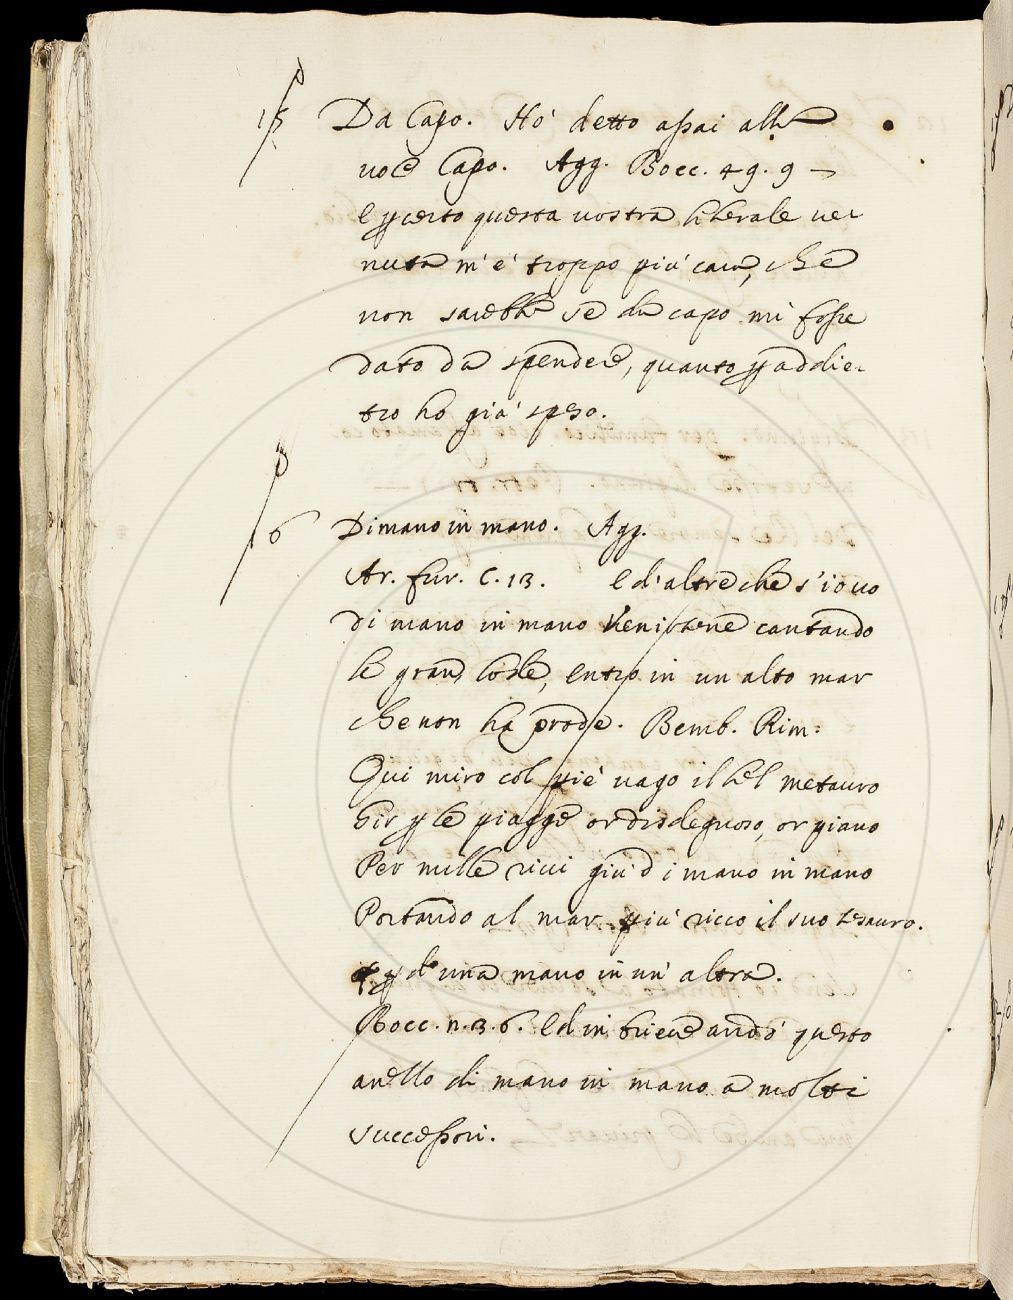 15 Da Capo. Hò detto assai alla
voce Capo. Agg. Bocc. 49. 9
E p certo questa vostra liberale ve-
nuta m'è troppo più cara, che
non sarebbe se da capo mi fosse
dato da spendere, quanto p addie-
tro ho già speso.
6 Di mano in mano. Agg.
Ar. fur. C. 13. E d'altre che s'io vo
Di mano in mano venirtene cantando
le gran lode, entro in un alto mar
che non ha prode. Bemb. Rim:
Qui miro col piè vago il bel metauro
Gir p le piagge or disdegnoso, or piano
Per mille rivi giù di mano in mano
Portando al mar più ricco il suo tesauro.
p d'una mano in un' altra.
Bocc. n. 3. 6. Ed in brieve andò questo
anello di mano in mano a molti
successori.